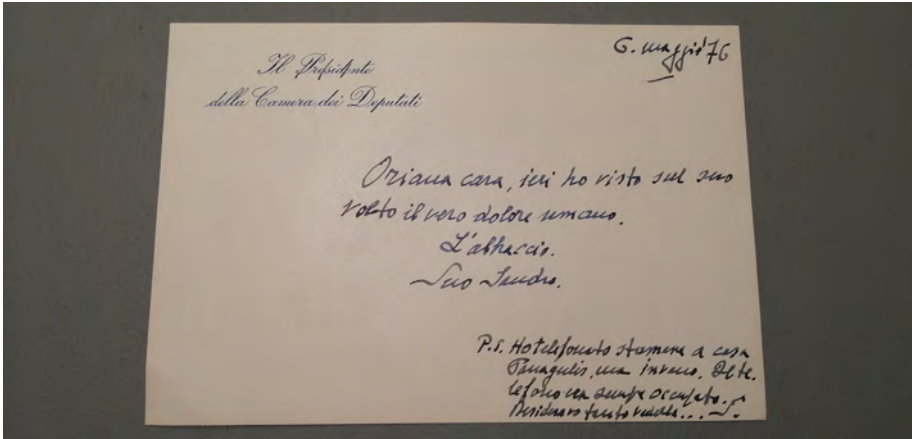 Il Presidente
della Camera dei Deputati
6. maggio '76
Oriana cara, ieri ho visto sul suo
volto il vero dolore umano.
L'abbraccio.
Suo Sandro.
P.S. Ho telefonato stamane a casa
Panagulis, ma invano. Il te-
lefono era sempre occupato.
Desideravo tanto vederla... S.